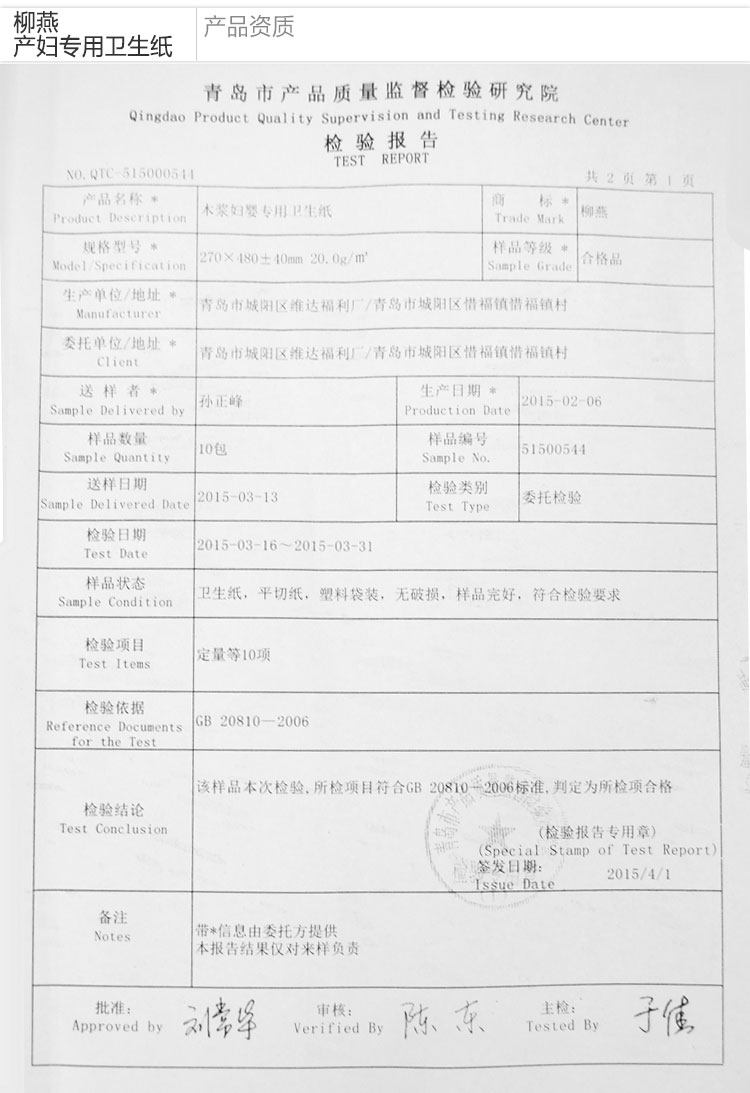 柳燕
产妇专用卫生纸
产品资质
青岛市产品质量监督检验研究院
Qingdao Product Quality Supervision and Testing Research Center
检验报告
TEST REPORT
NO.QTC-515000544
共 2 页 第 1 页
产品名称 *
Product Description
木浆妇婴专用卫生纸
商 标 *
Trade Mark
柳燕
规格型号 *
Model/Specification
270×480±40mm 20.0g/㎡
样品等级 *
Sample Grade
合格品
生产单位/地址 *
Manufacturer
青岛市城阳区维达福利厂/青岛市城阳区惜福镇惜福镇村
委托单位/地址 *
Client
青岛市城阳区维达福利厂/青岛市城阳区惜福镇惜福镇村
送 样 者 *
Sample Delivered by
孙正峰
生产日期 *
Production Date
2015-02-06
样品数量
Sample Quantity
10包
样品编号
Sample No.
51500544
送样日期
Sample Delivered Date
2015-03-13
检验类别
Test Type
委托检验
检验日期
Test Date
2015-03-16～2015-03-31
样品状态
Sample Condition
卫生纸，平切纸，塑料袋装，无破损，样品完好，符合检验要求
检验项目
Test Items
定量等10项
检验依据
Reference Documents
for the Test
GB 20810—2006
检验结论
Test Conclusion
该样品本次检验,所检项目符合GB 20810－2006标准,判定为所检项合格
(检验报告专用章)
(Special Stamp of Test Report)
签发日期:
Issue Date
2015/4/1
备注
Notes
带*信息由委托方提供
本报告结果仅对来样负责
批准:
Approved by
刘常华
审核:
Verified By
陈东
主检:
Tested By
于佳